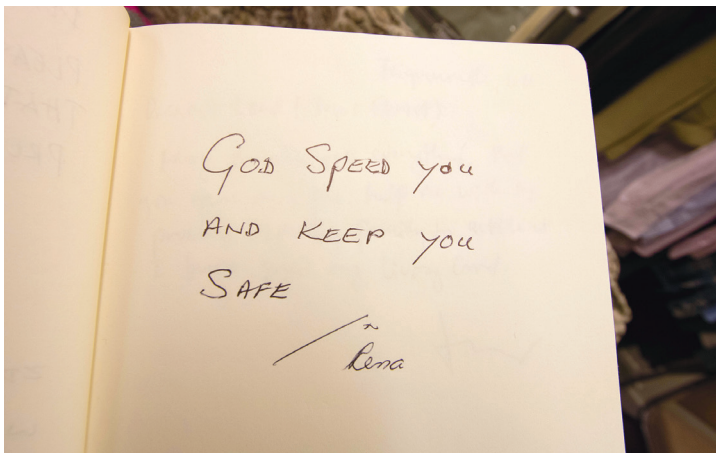 GOD SPEED you
AND KEEP you
SAFE
~ Rena